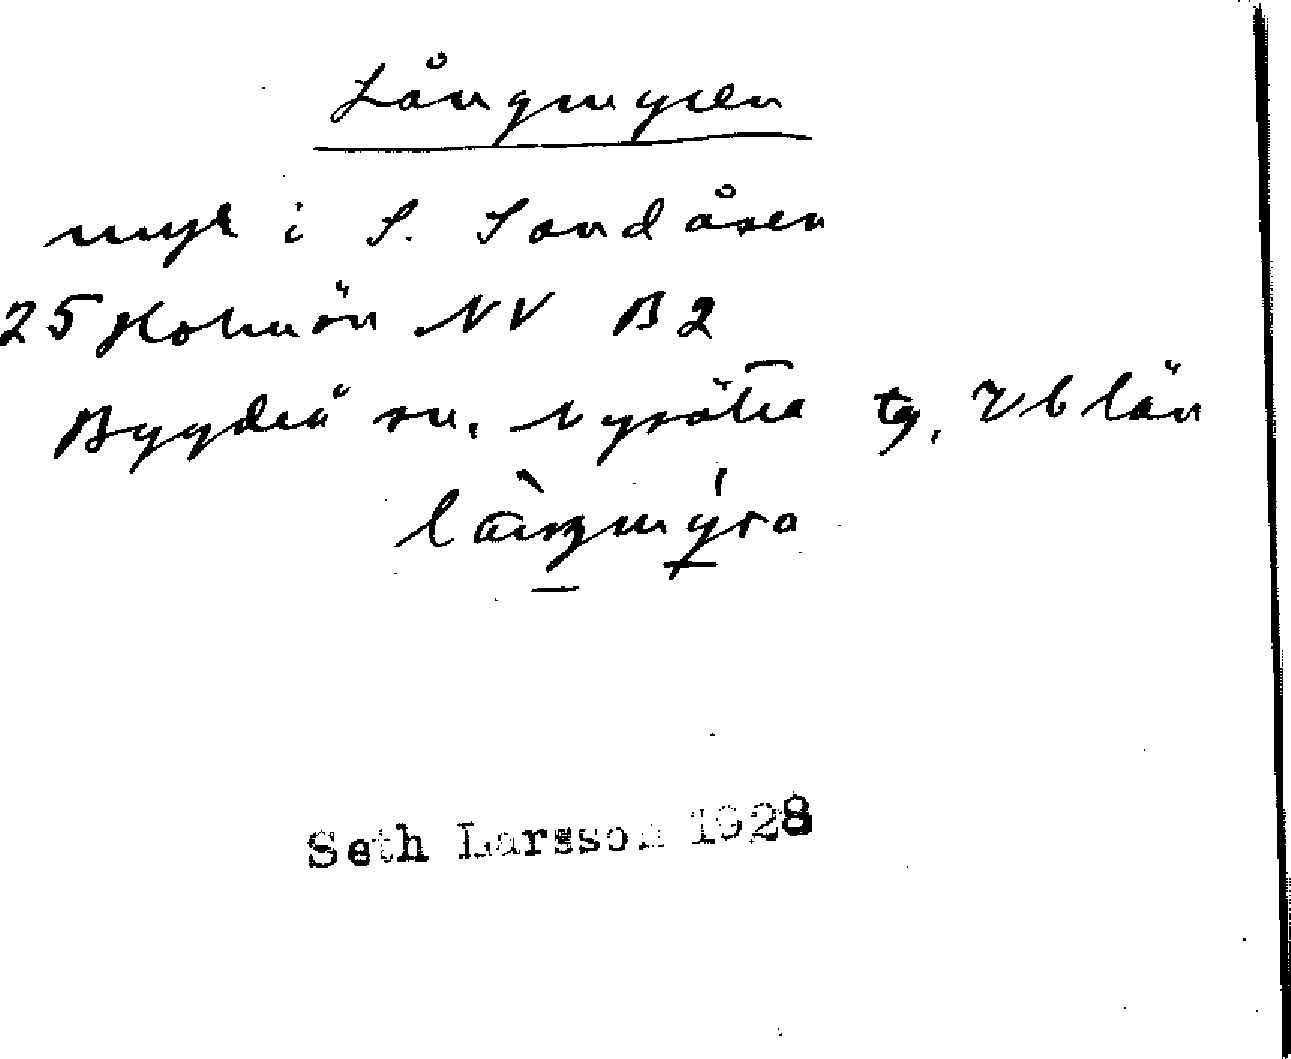 Långmyren
myr i S. Sandåsen
25 Holmön NV B2
Bygdeå sn. Nysätra tg, Vb län
Seth Larsson 1928